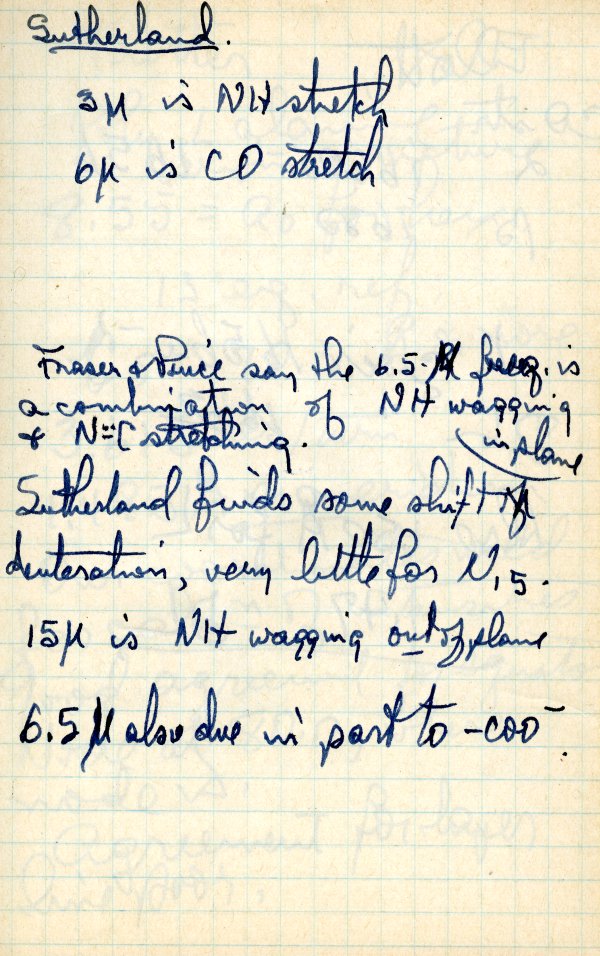 Sutherland.
3μ is NH stretch
6μ is CO stretch
Fraser & Price say the 6.5 μ freq. is
a combination of NH wagging
& N=C stretching. in plane
Sutherland finds some shift
deuteration, very little for N15.
15μ is NH wagging out of plane
6.5 μ also due in part to -COO⁻.